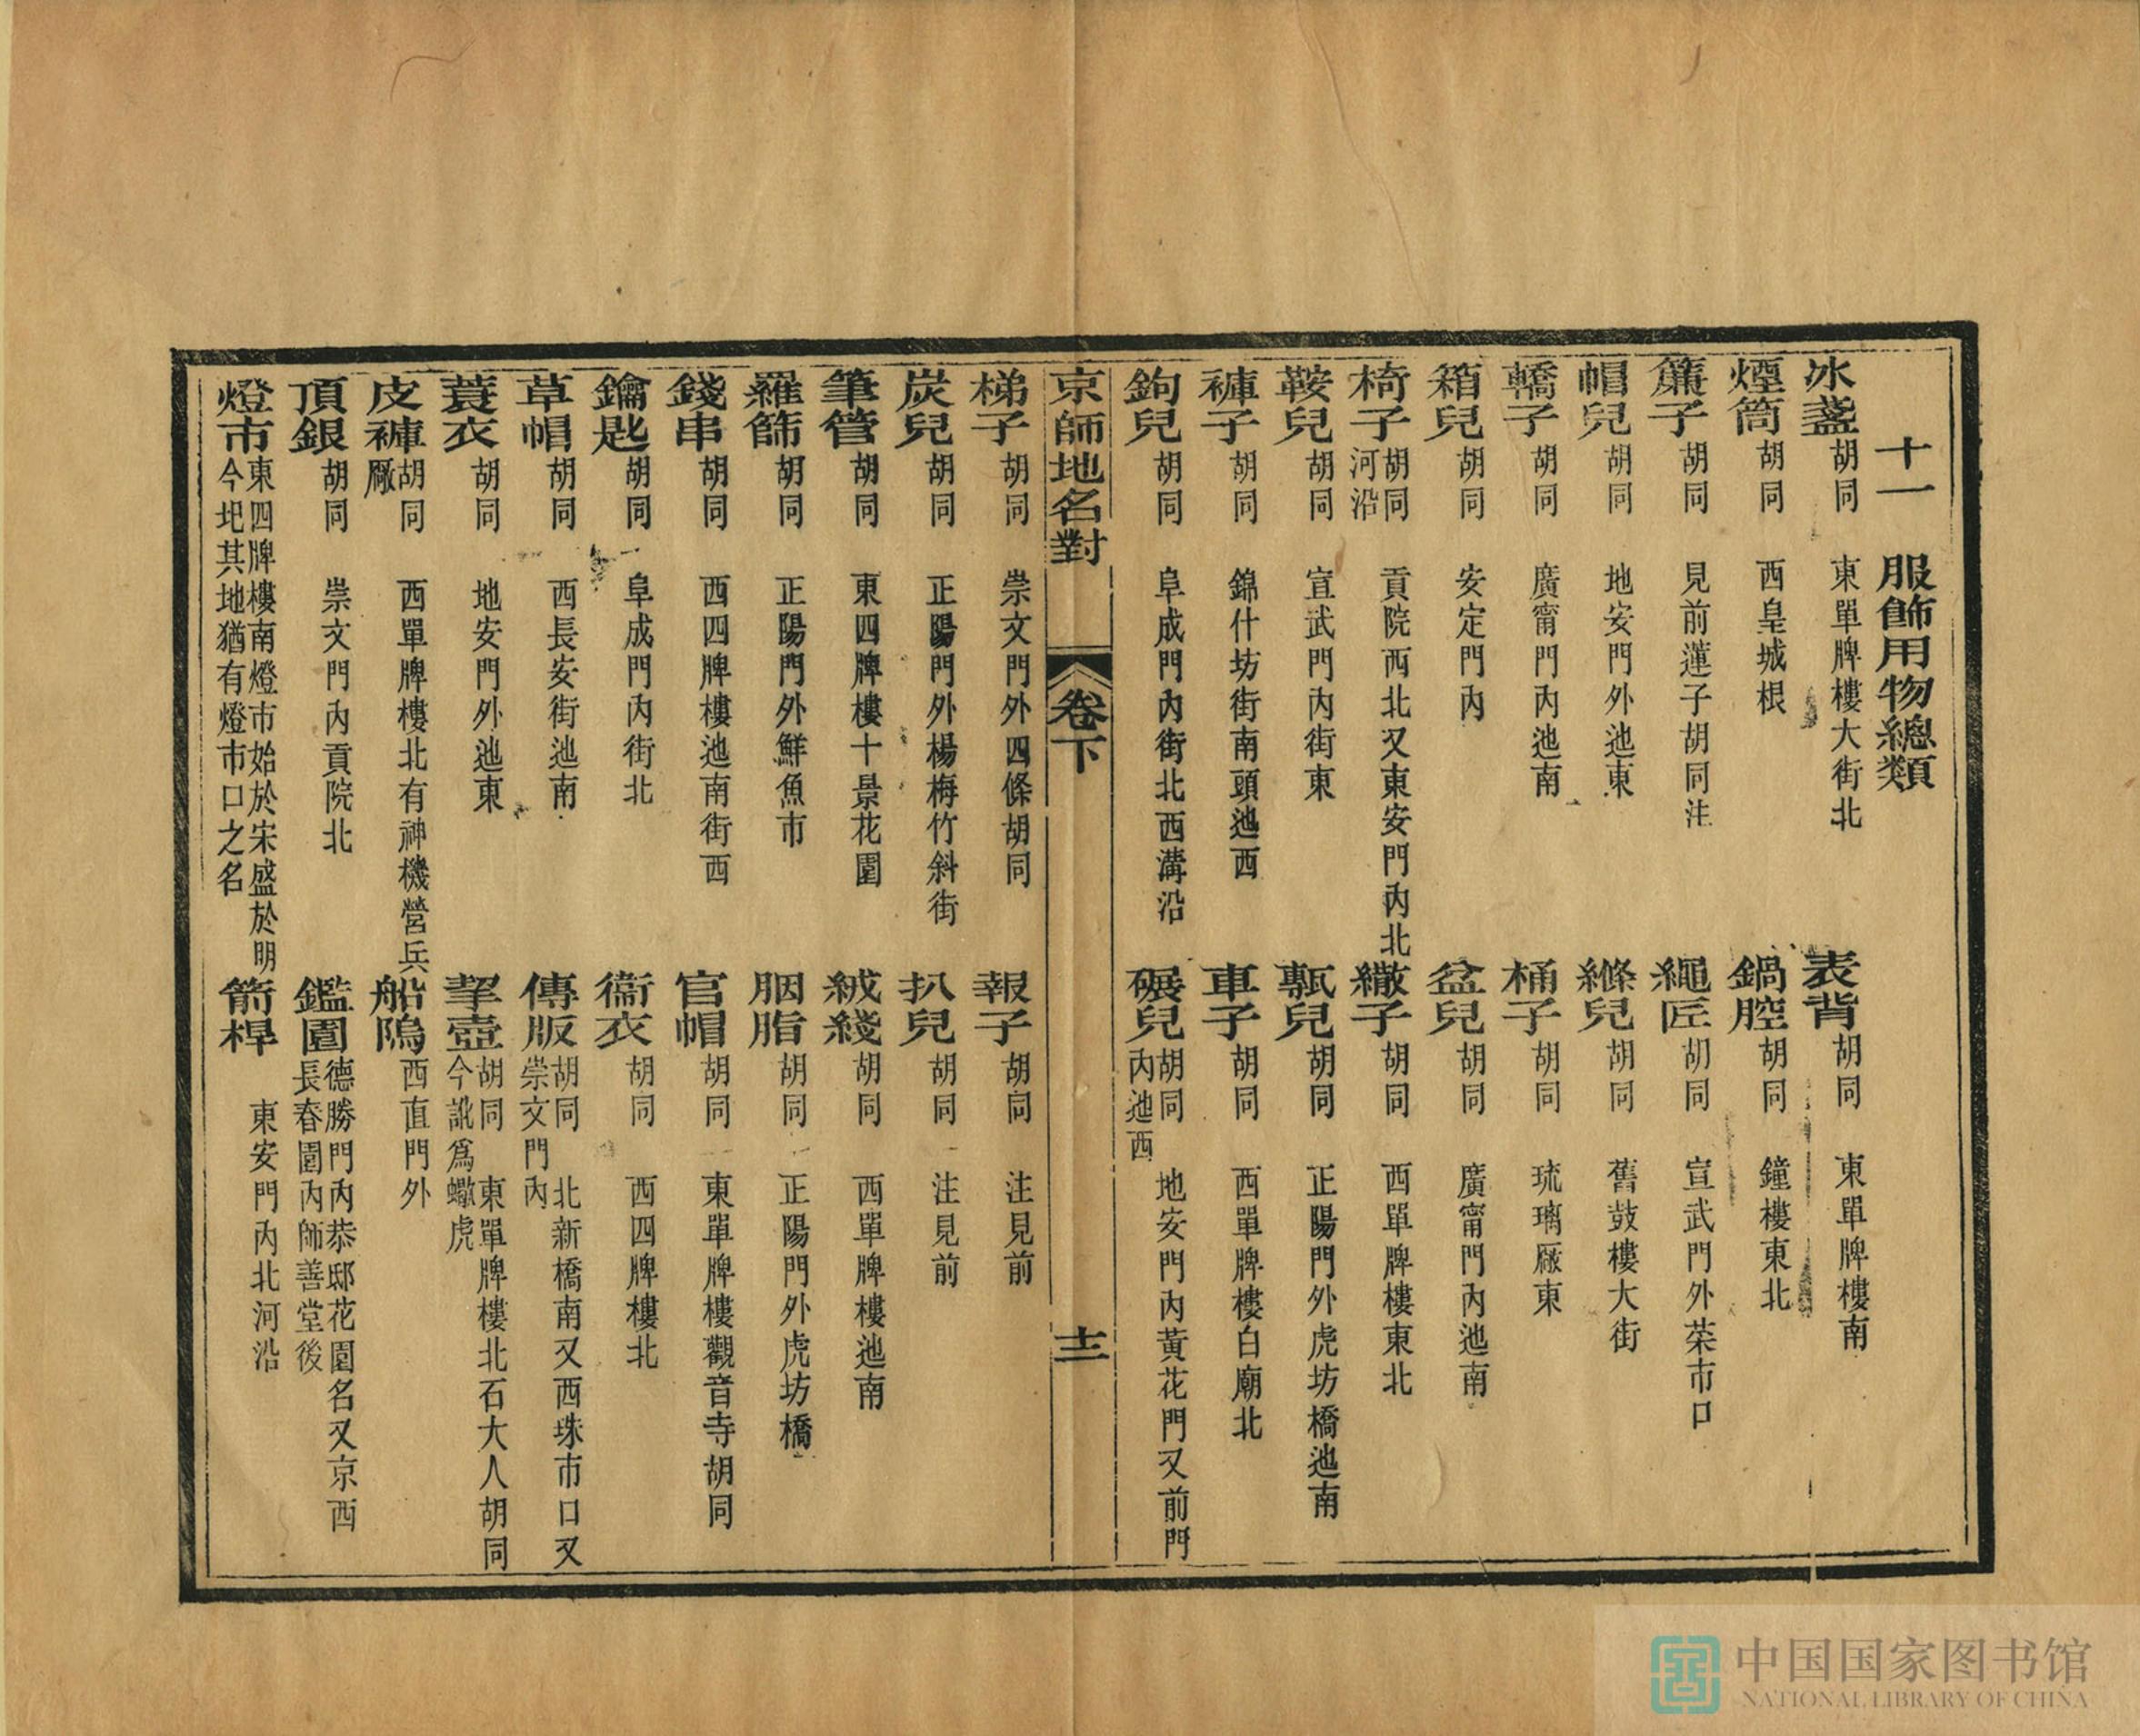 十一 服飾用物總類
冰盞胡同 東單牌樓大街北 表背胡同 東單牌樓南
煙筒胡同 西皇城根 鍋腔胡同 鐘樓東北
簾子胡同 見前蓮子胡同注 繩匠胡同 宣武門外菜市口
帽兒胡同 地安門外迆東 縧兒胡同 舊鼓樓大街
轎子胡同 廣甯門內迆南 桶子胡同 琉璃厰東
箱兒胡同 安定門內 盆兒胡同 廣甯門內迆南
椅子胡同河沿 貢院西北又東安門內北 繖子胡同 西單牌樓東北
鞍兒胡同 宣武門內街東 甎兒胡同 正陽門外虎坊橋迆南
褲子胡同 錦什坊街南頭迆西 車子胡同 西單牌樓白廟北
鉤兒胡同 阜成門內街北西溝沿 碾兒胡同 地安門內黃花門又前門內迆西
京師地名對 卷下 十二
梯子胡同 崇文門外四條胡同 報子胡同 注見前
炭兒胡同 正陽門外楊梅竹斜街 扒兒胡同 注見前
筆管胡同 東四牌樓十景花園 絨綫胡同 西單牌樓迆南
羅篩胡同 正陽門外鮮魚市 胭脂胡同 正陽門外虎坊橋
錢串胡同 西四牌樓迆南街西 官帽胡同 東單牌樓觀音寺胡同
鑰匙胡同 阜成門內街北 衞衣胡同 西四牌樓北
草帽胡同 西長安街迆南 傳版胡同 北新橋南又西珠市口又崇文門內
蓑衣胡同 地安門外迆東 挈壺胡同 東單牌樓北石大人胡同今訛爲蠍虎
皮褲胡同 西單牌樓北有神機營兵厰 船隖 西直門外
頂銀胡同 崇文門內貢院北 鑑園 德勝門內恭邸花園名又京西長春園內師善堂後
燈市 東四牌樓南燈市始於宋盛於明今圯其地猶有燈市口之名 箭桿 東安門內北河沿
中国国家图书馆
NATIONAL LIBRARY OF CHINA